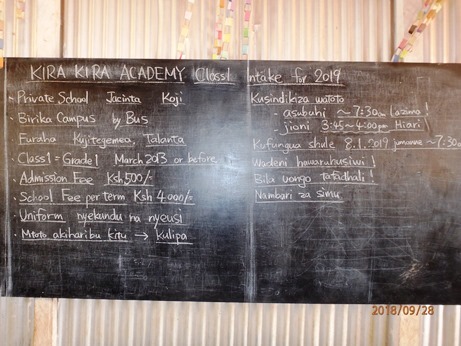 KIRA KIRA ACADEMY Class1 Intake for 2019
・Private School Jacinta Koji
・Birika Campus by Bus
・Furaha Kujitegemea, Talanta
・Class1 = Grade1 March 2013 or before
・Admission Fee Ksh 500/-
・School Fee per term Ksh 4000/-
・Uniform nyekundu na nyeusi
・Mtoto akiharibu kitu → kulipa
Kusindikiza watoto
- asubuhi ~7:30am Lazima!
- jioni 3:45~4:00pm Hiari
Kufungua shule 8.1.2019 jumanne ~7:30am
Wadeni hawaruhusiwi!
Bila uongo tafadhali!
Nambari za simu
2018/09/28